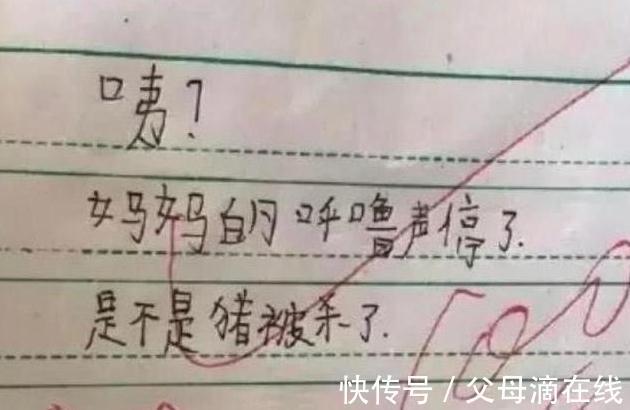 咦？
妈妈的呼噜声停了.
是不是猪被杀了.
快传号 / 父母滴在线